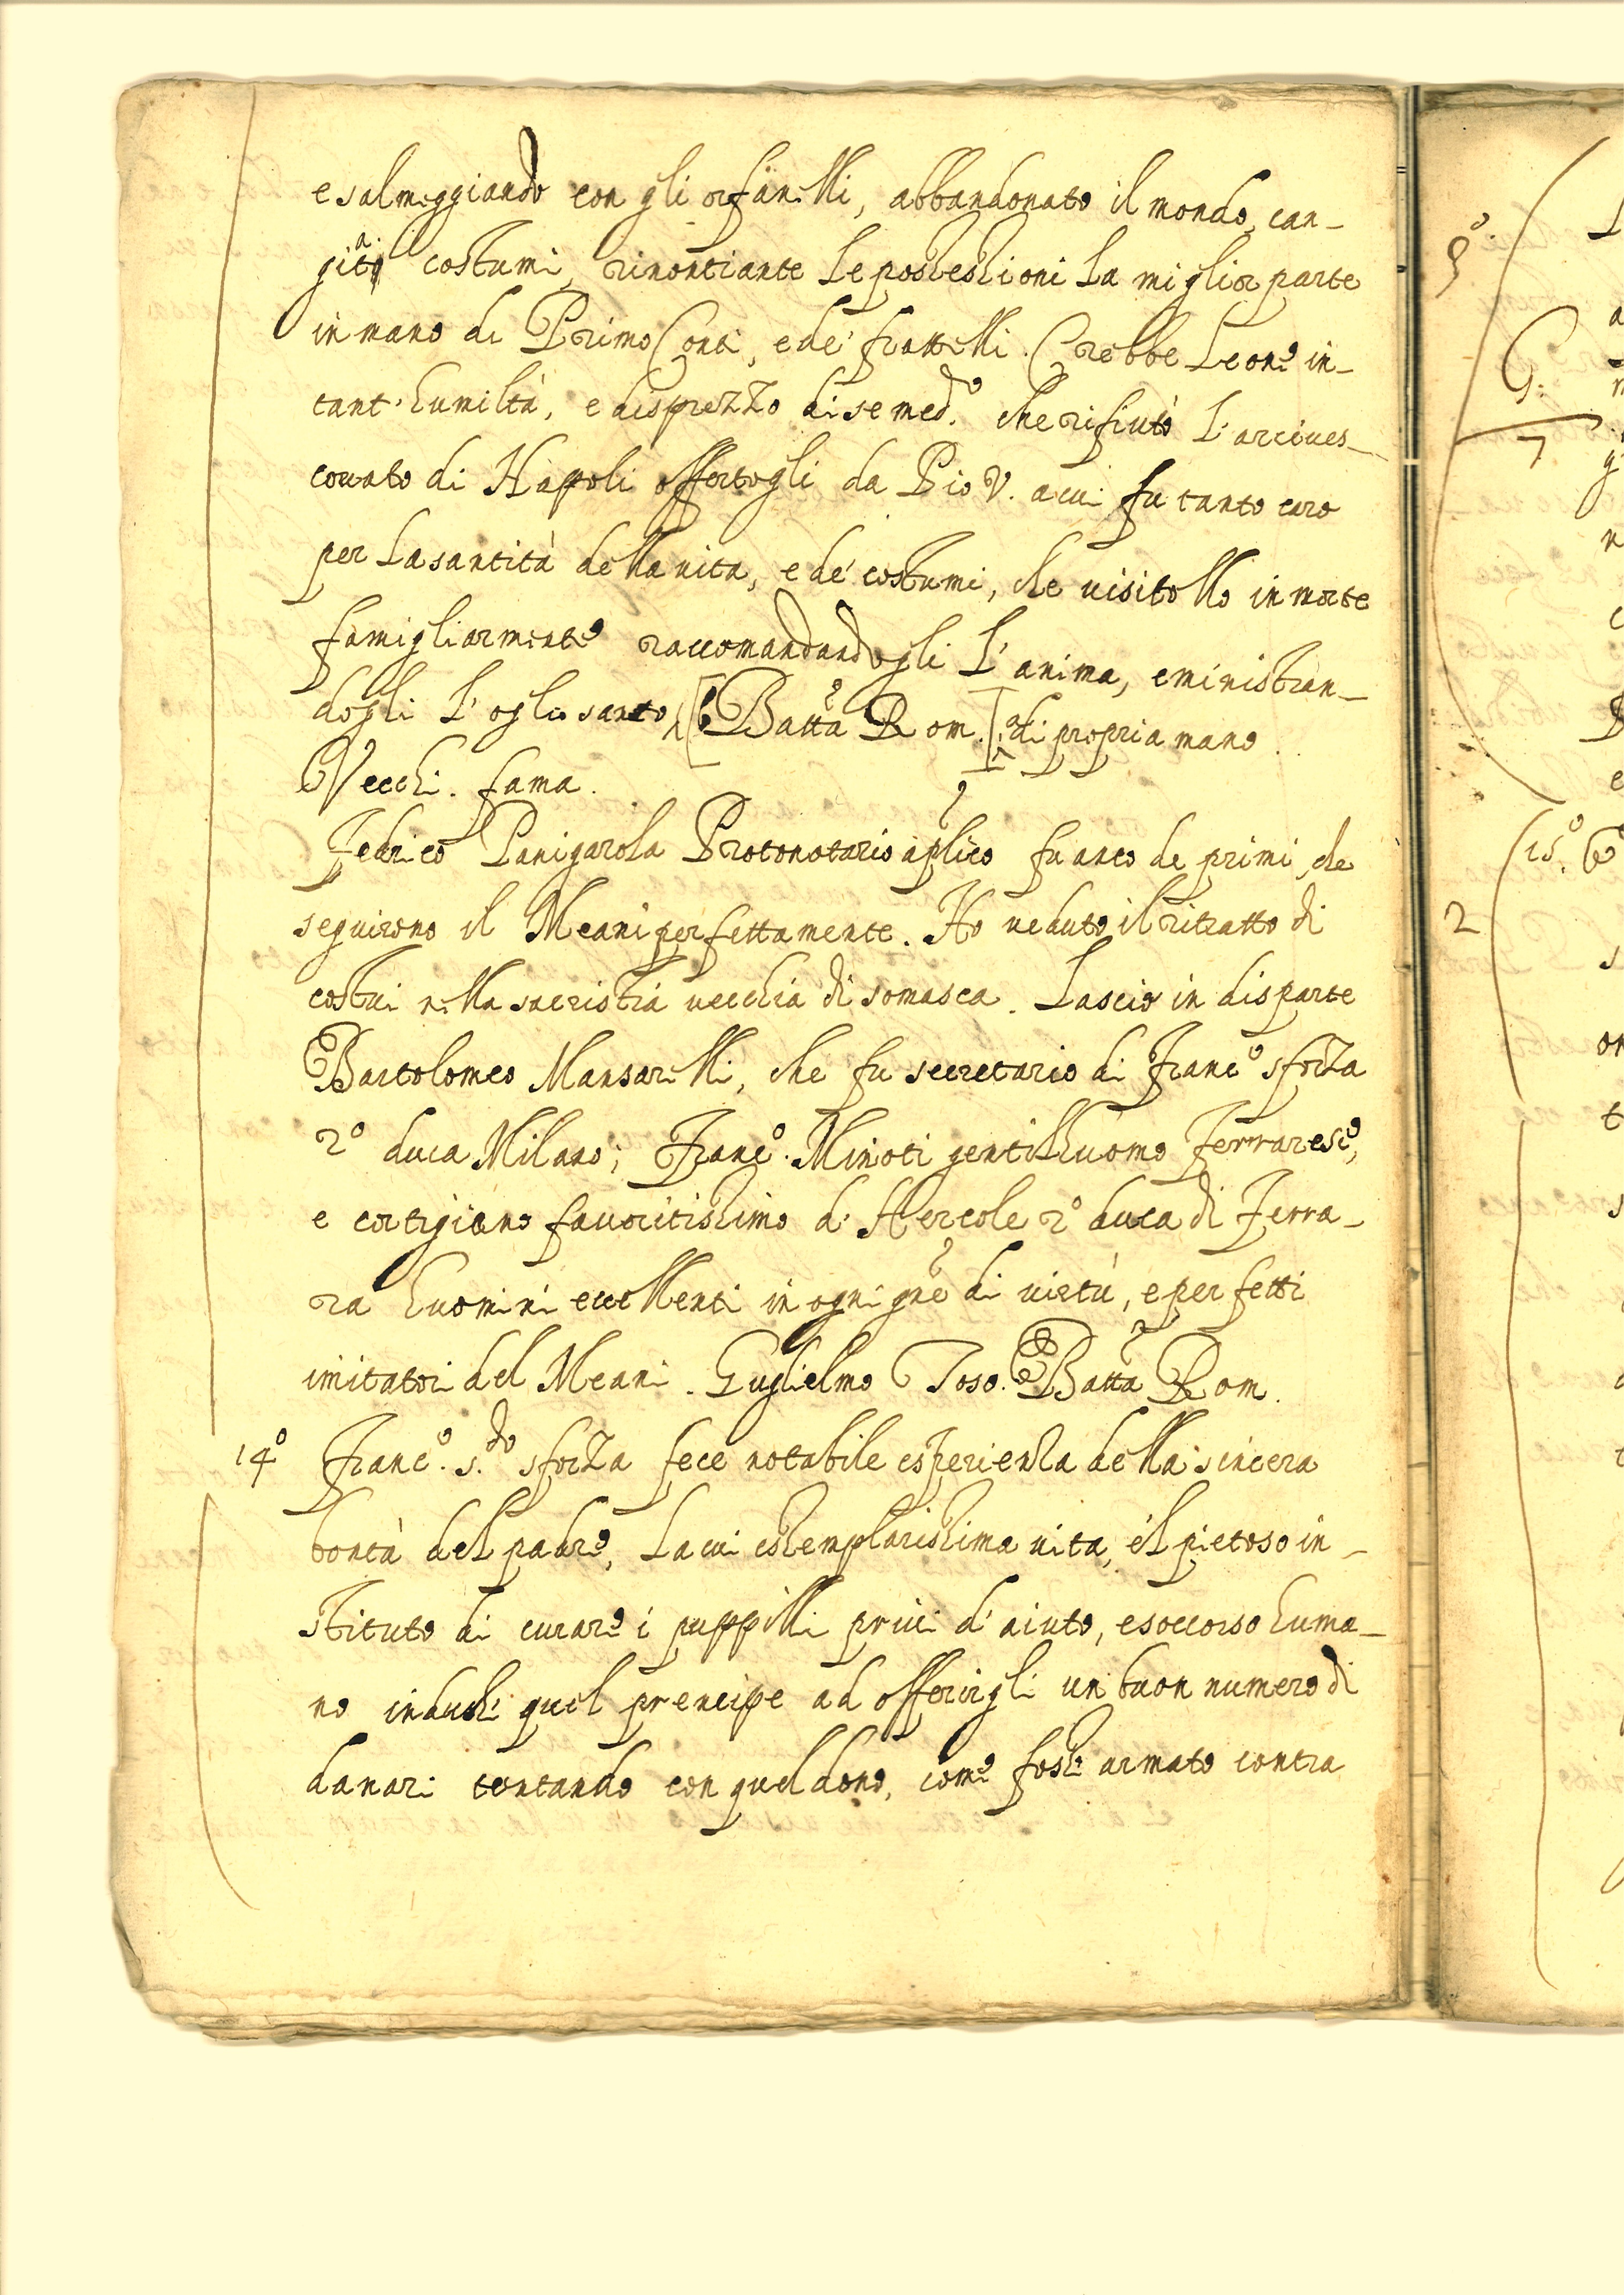 e salmeggiando con gli orfanelli, abbandonato il mondo, can-
giati costumi, rinontiante le possessioni la miglior parte
in mano di Primo Conti, e de' frattelli. Crebbe Leone in-
tant' humiltà, e disprezzo di se med.º che rifiutò l'arcives-
covato di Napoli offertogli da Pio V. a cui fu tanto caro
per la santità della vita, e de' costumi, che visitollo in morte
famigliarmente raccomandandogli l'anima, e ministran-
dogli l'oglio santo [Batta Rom.] di propria mano.
Vecchi. fama.
Fedrico Panigarola Protonotario aplico fu anco de primi, che
seguirono il Meani perfettamente. Ho veduto il ritratto di
costui nella sacristia vecchia di somasca. Lascio in disparte
Bartolomeo Mansarelli, che fu secretario di Francº sforza
2º duca Milano; Francº. Minoti gentilhuomo Ferrarese,
e cortigiano favoritissimo d' Hercole 2º duca di Ferra-
ra huomini eccellenti in ogni gne di virtù, e perfetti
imitatori del Meani. Guglielmo Toso. Batta Rom.
14º Francº. s.do sforza fece notabile esperienza della sincera
bontà del padre, la cui essemplarissima vita, e'l pietoso in-
stituto di curare i puppilli privi d'aiuto, e soccorso huma-
no indusse quel prencipe ad offerirgli un buon numero di
danari tentando con quel dono, come fosse armato contra
9º.
G:
7
15º.
2